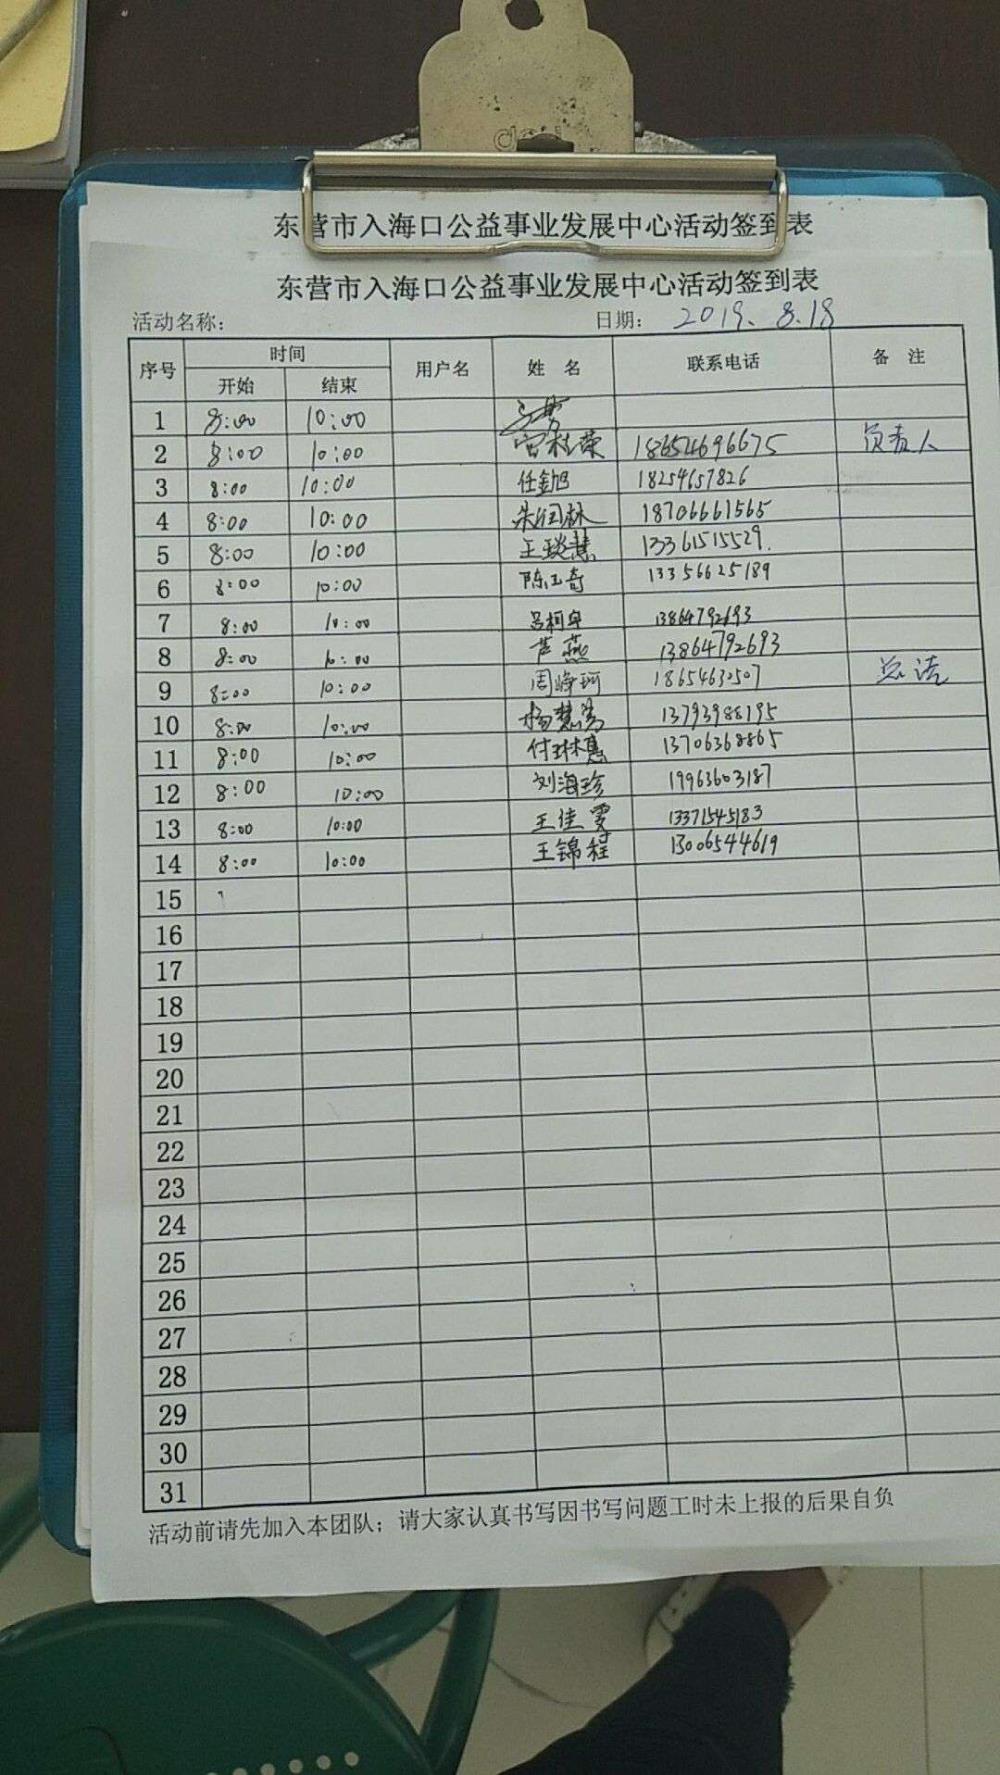 deli
东营市入海口公益事业发展中心活动签到表
东营市入海口公益事业发展中心活动签到表
活动名称： 日期： 2019.8.18
序号 时间 用户名 姓 名 联系电话 备 注
开始 结束
1 8:00 10:00
2 8:00 10:00 宫桂荣 18654696675 负责人
3 8:00 10:00 任金旭 18254657826
4 8:00 10:00 朱润林 18706661565
5 8:00 10:00 王琰慧 13361515529.
6 8:00 10:00 陈玉奇 13356625189
7 8:00 10:00 吕柯卓 13864792693
8 8:00 10:00 芦燕 13864792693
9 8:00 10:00 周峥珂 18654630507
10 8:00 10:00 杨慧 13793988195
11 8:00 10:00 付琳惠 13706368865
12 8:00 10:00 刘海珍 19963603187
13 8:00 10:00 王佳雯 13371545183
14 8:00 10:00 王锦程 13006544619
15
16
17
18
19
20
21
22
23
24
25
26
27
28
29
30
31
活动前请先加入本团队；请大家认真书写因书写问题工时未上报的后果自负